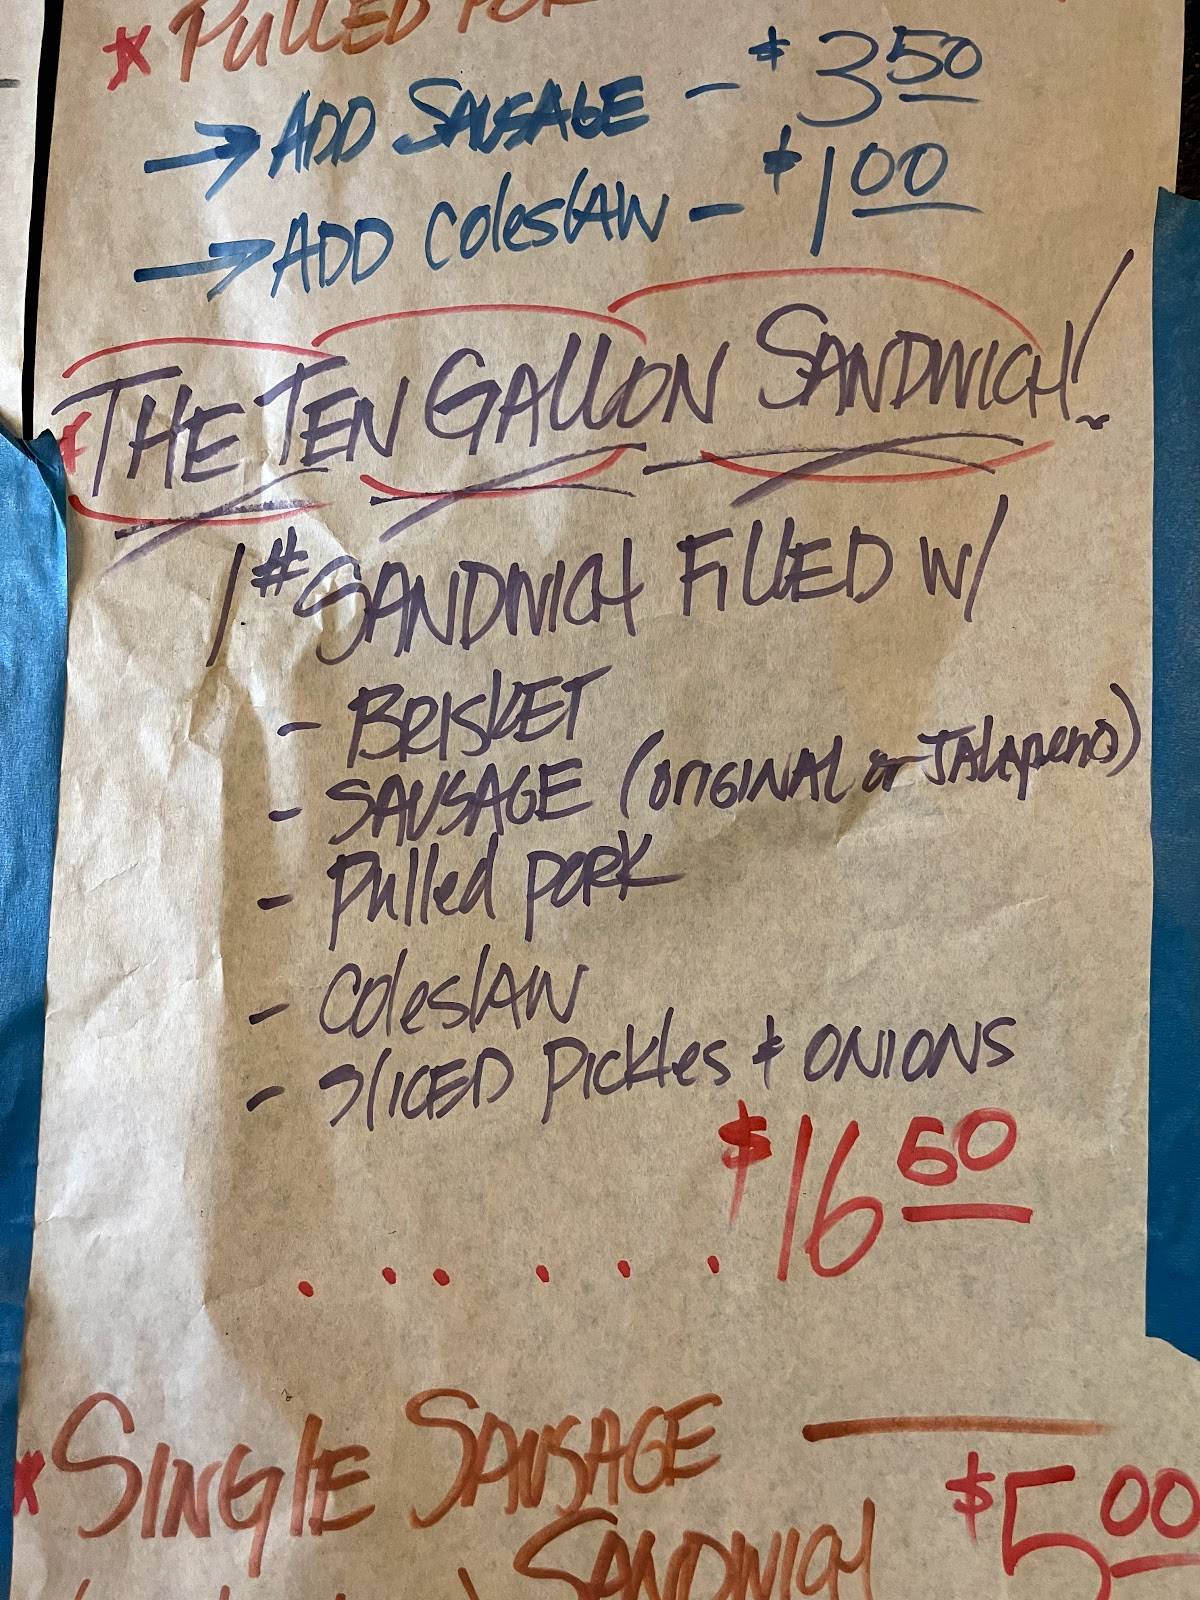 * PULLED POR
→ ADD SAUSAGE - $3.50
→ ADD ColeslAW - $1.00
* THE TEN GALLON SANDWICH!
1# SANDWICH FILLED W/
- BRISKET
- SAUSAGE (ORIGINAL or JALApeno)
- pulled pork
- ColeslAW
- SLICED PICKles & ONIONS
......$16.50
* SINGLE SAUSAGE — $5.00
SANDWICH